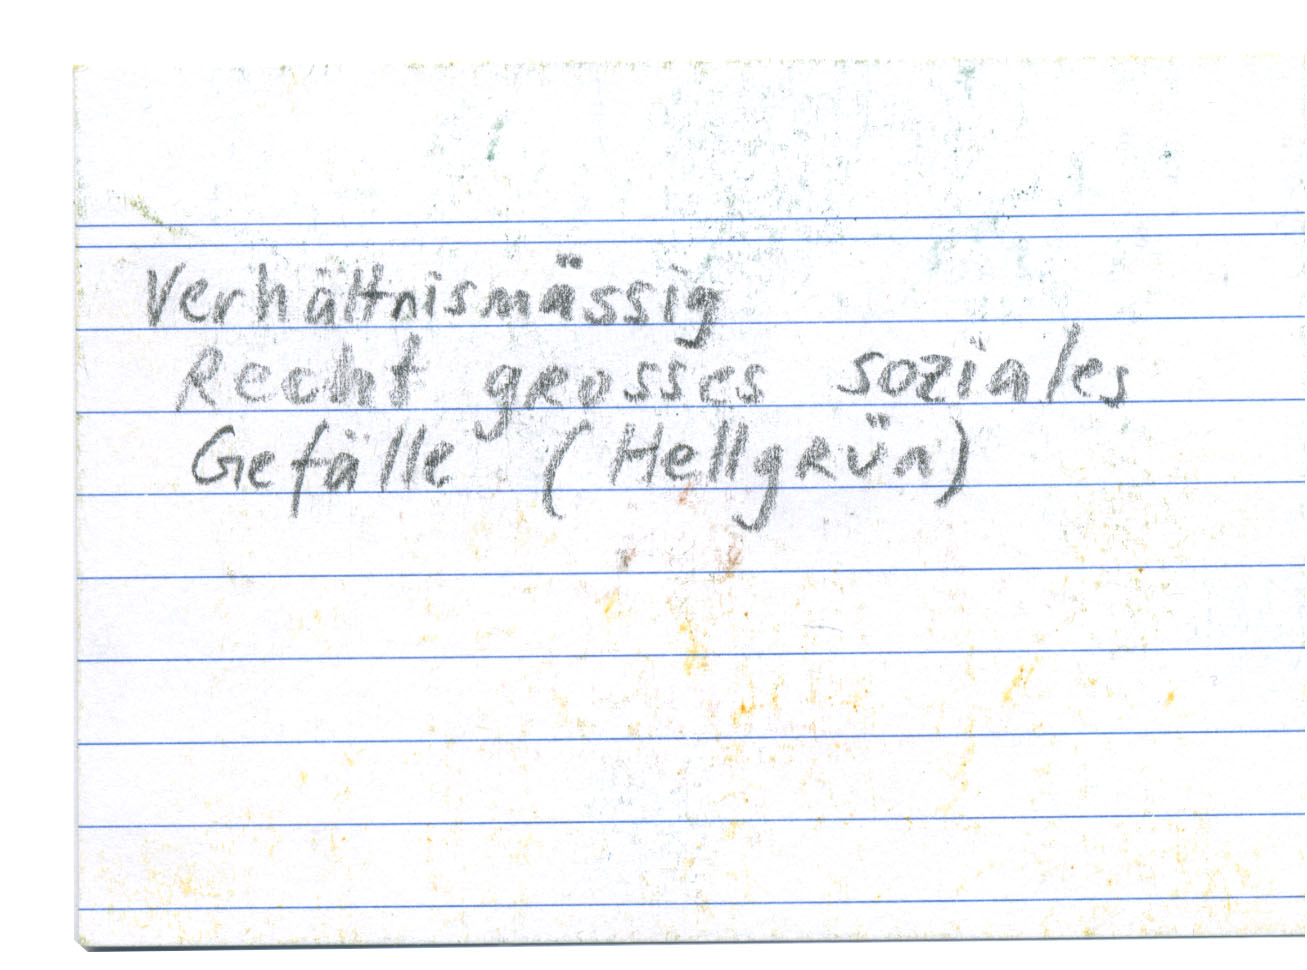 Verhältnismässig
Recht grosses soziales
Gefälle (Hellgrün)